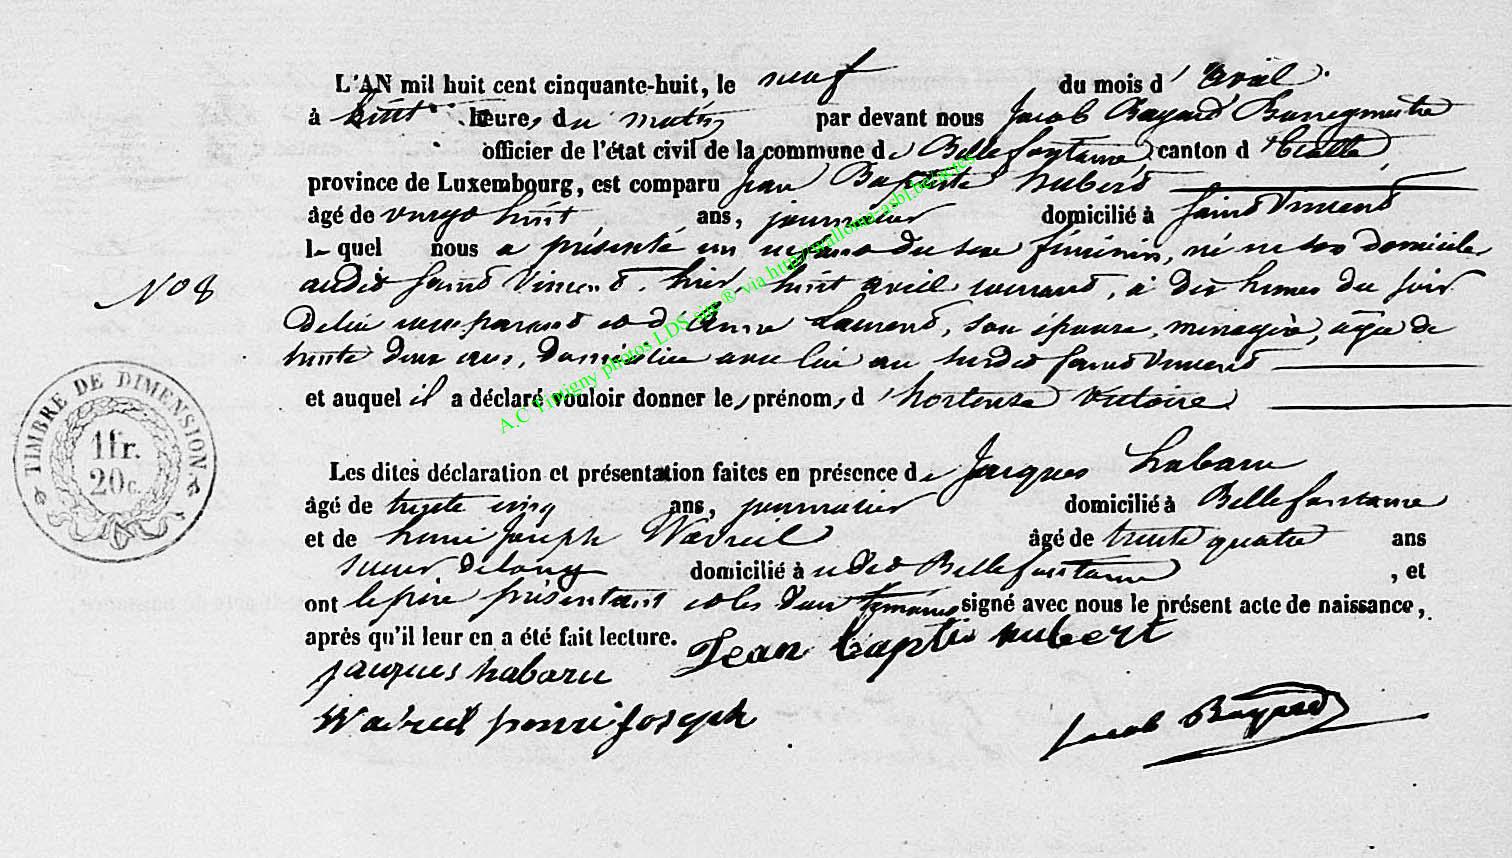 L'AN mil huit cent cinquante-huit, le neuf du mois d' avril.
à huit heures du matin par devant nous Jacob Bayard Bourgmestre
officier de l'état civil de la commune de Bellefontaine canton d'Etalle
province de Luxembourg, est comparu Jean Baptiste hubert
âgé de vingt huit ans, journalier domicilié à Saint Vincent
lequel nous a présenté un enfant du sexe féminin, né en son domicile
audit Saint Vincent, hier huit avril courant, à dix heures du soir
de lui comparant et d'Anne Laurent, son épouse, ménagère, âgée de
trente deux ans, domiciliée avec lui au susdit Saint Vincent
et auquel il a déclaré vouloir donner les prénoms d'hortense Victoire.
Les dites déclaration et présentation faites en présence de Jacques habaru
âgé de trente cinq ans, journalier domicilié à Bellefontaine
et de henri Joseph Wavreil âgé de trente quatre ans
scieur de long domicilié à udit Bellefontaine, et
ont le père présentant et les deux témoins signé avec nous le présent acte de naissance,
après qu'il leur en a été fait lecture.
Jean baptis hubert
jacques habaru
Wavreil henri joseph
Jacob Bayard
No 8
TIMBRE DE DIMENSION
1fr.
20c.
A.C Tintigny photos LDS site® via http://wallonia-asbl.be/actes